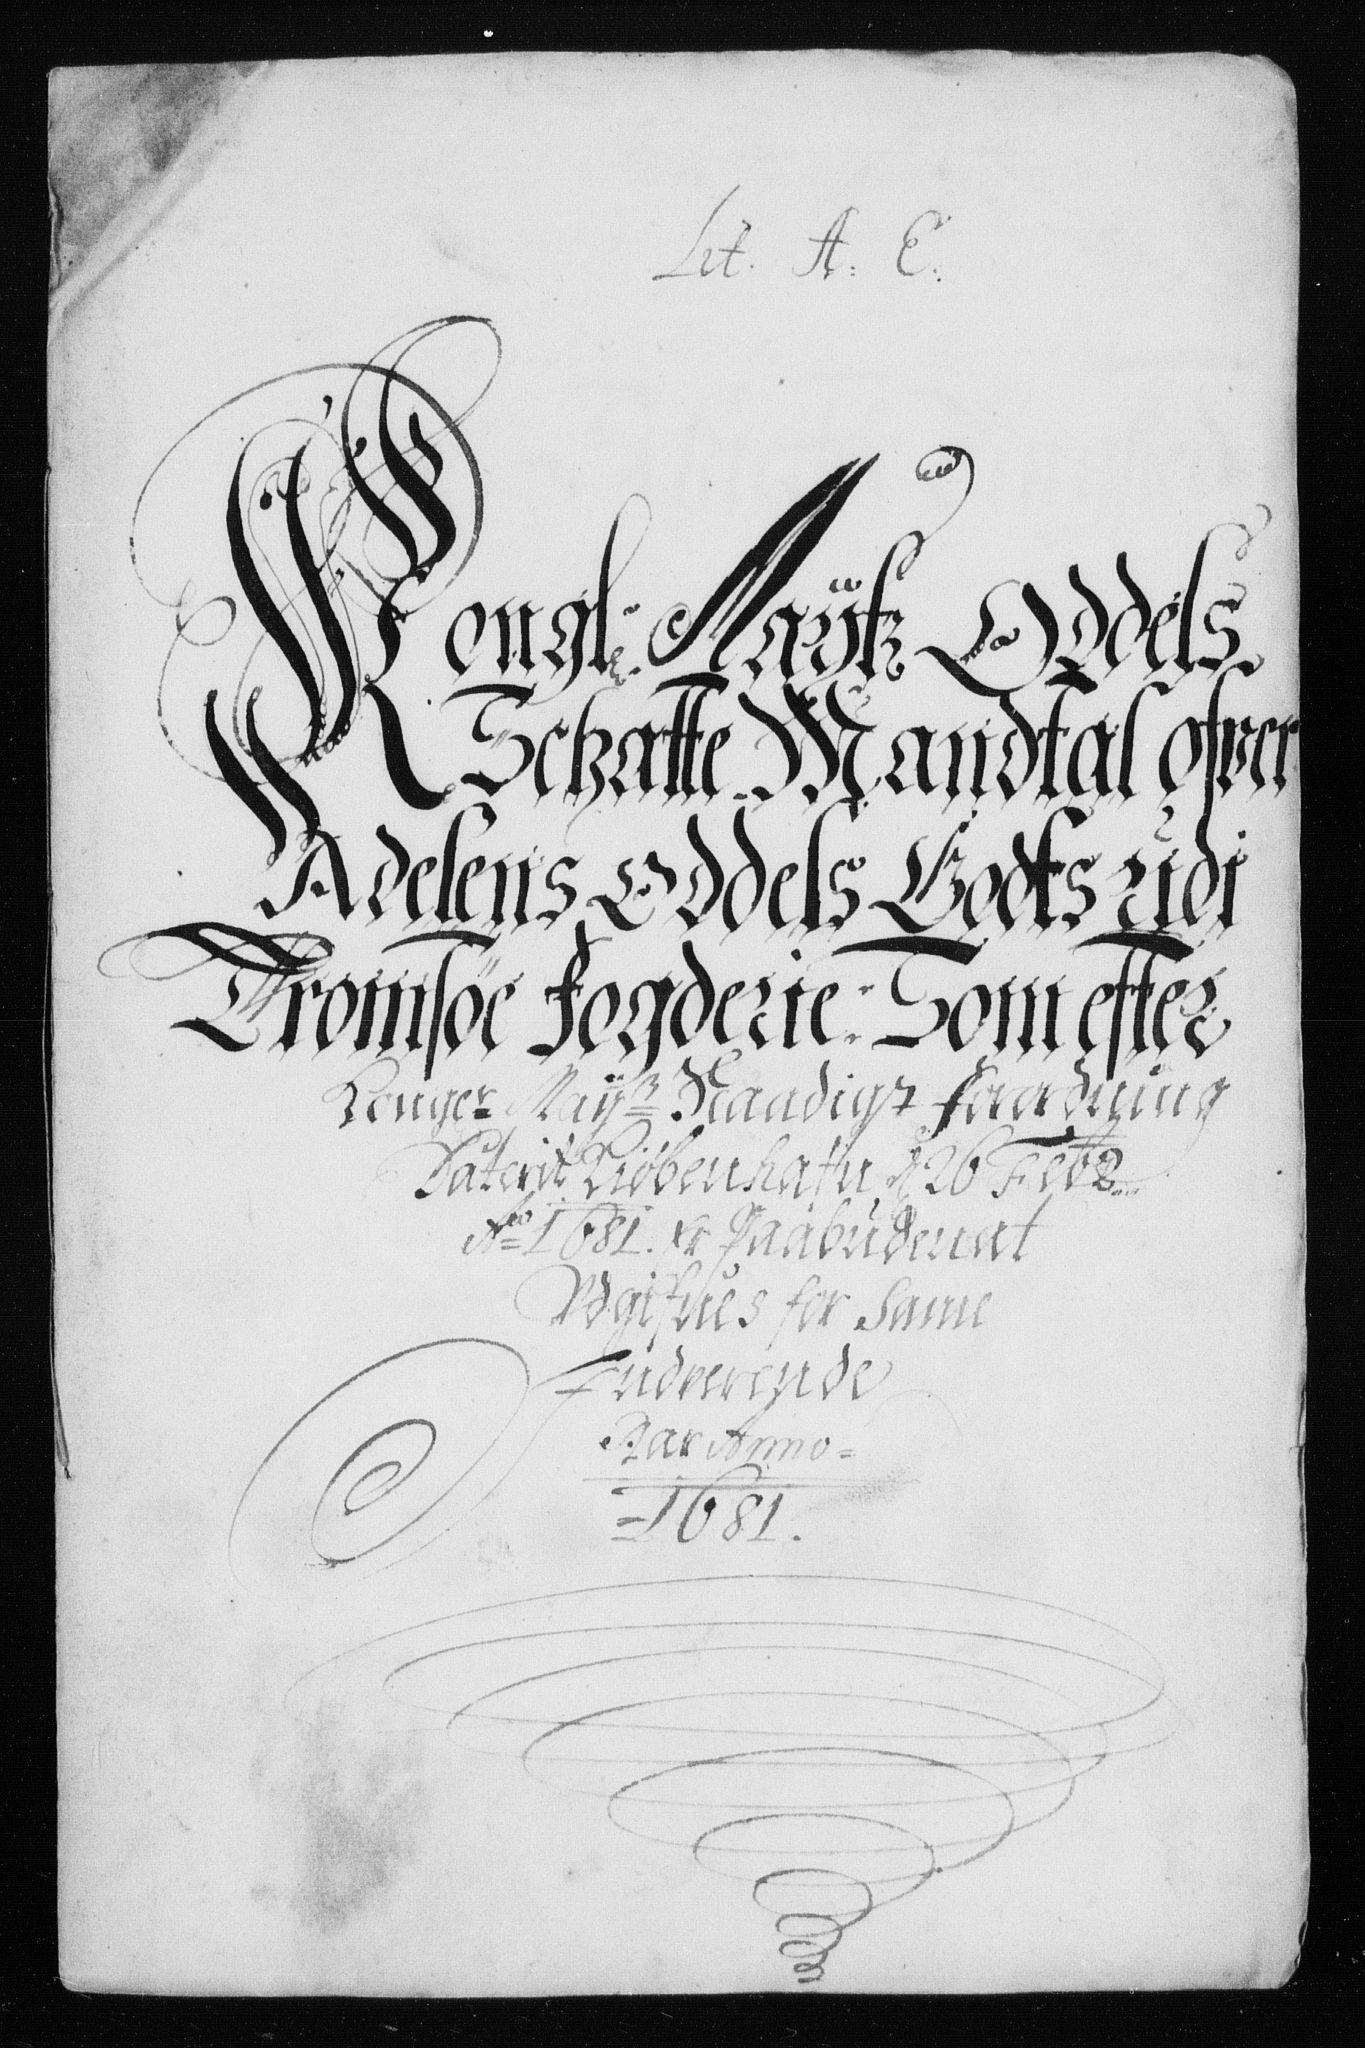 Lit. A: E:
Kongl: Maÿtz Oddels
Schatte Mandtal ofver
Adelens Oddels Godts udi
Tromsöe Fogderie: Som effter
Konger Mayß Naadigst forordning
Daterit Kiøbenhafn d 26 Feb:
Ao 1681. er Paabuden at
Udgifves for Same
Indverende
Aar Anno
1681.